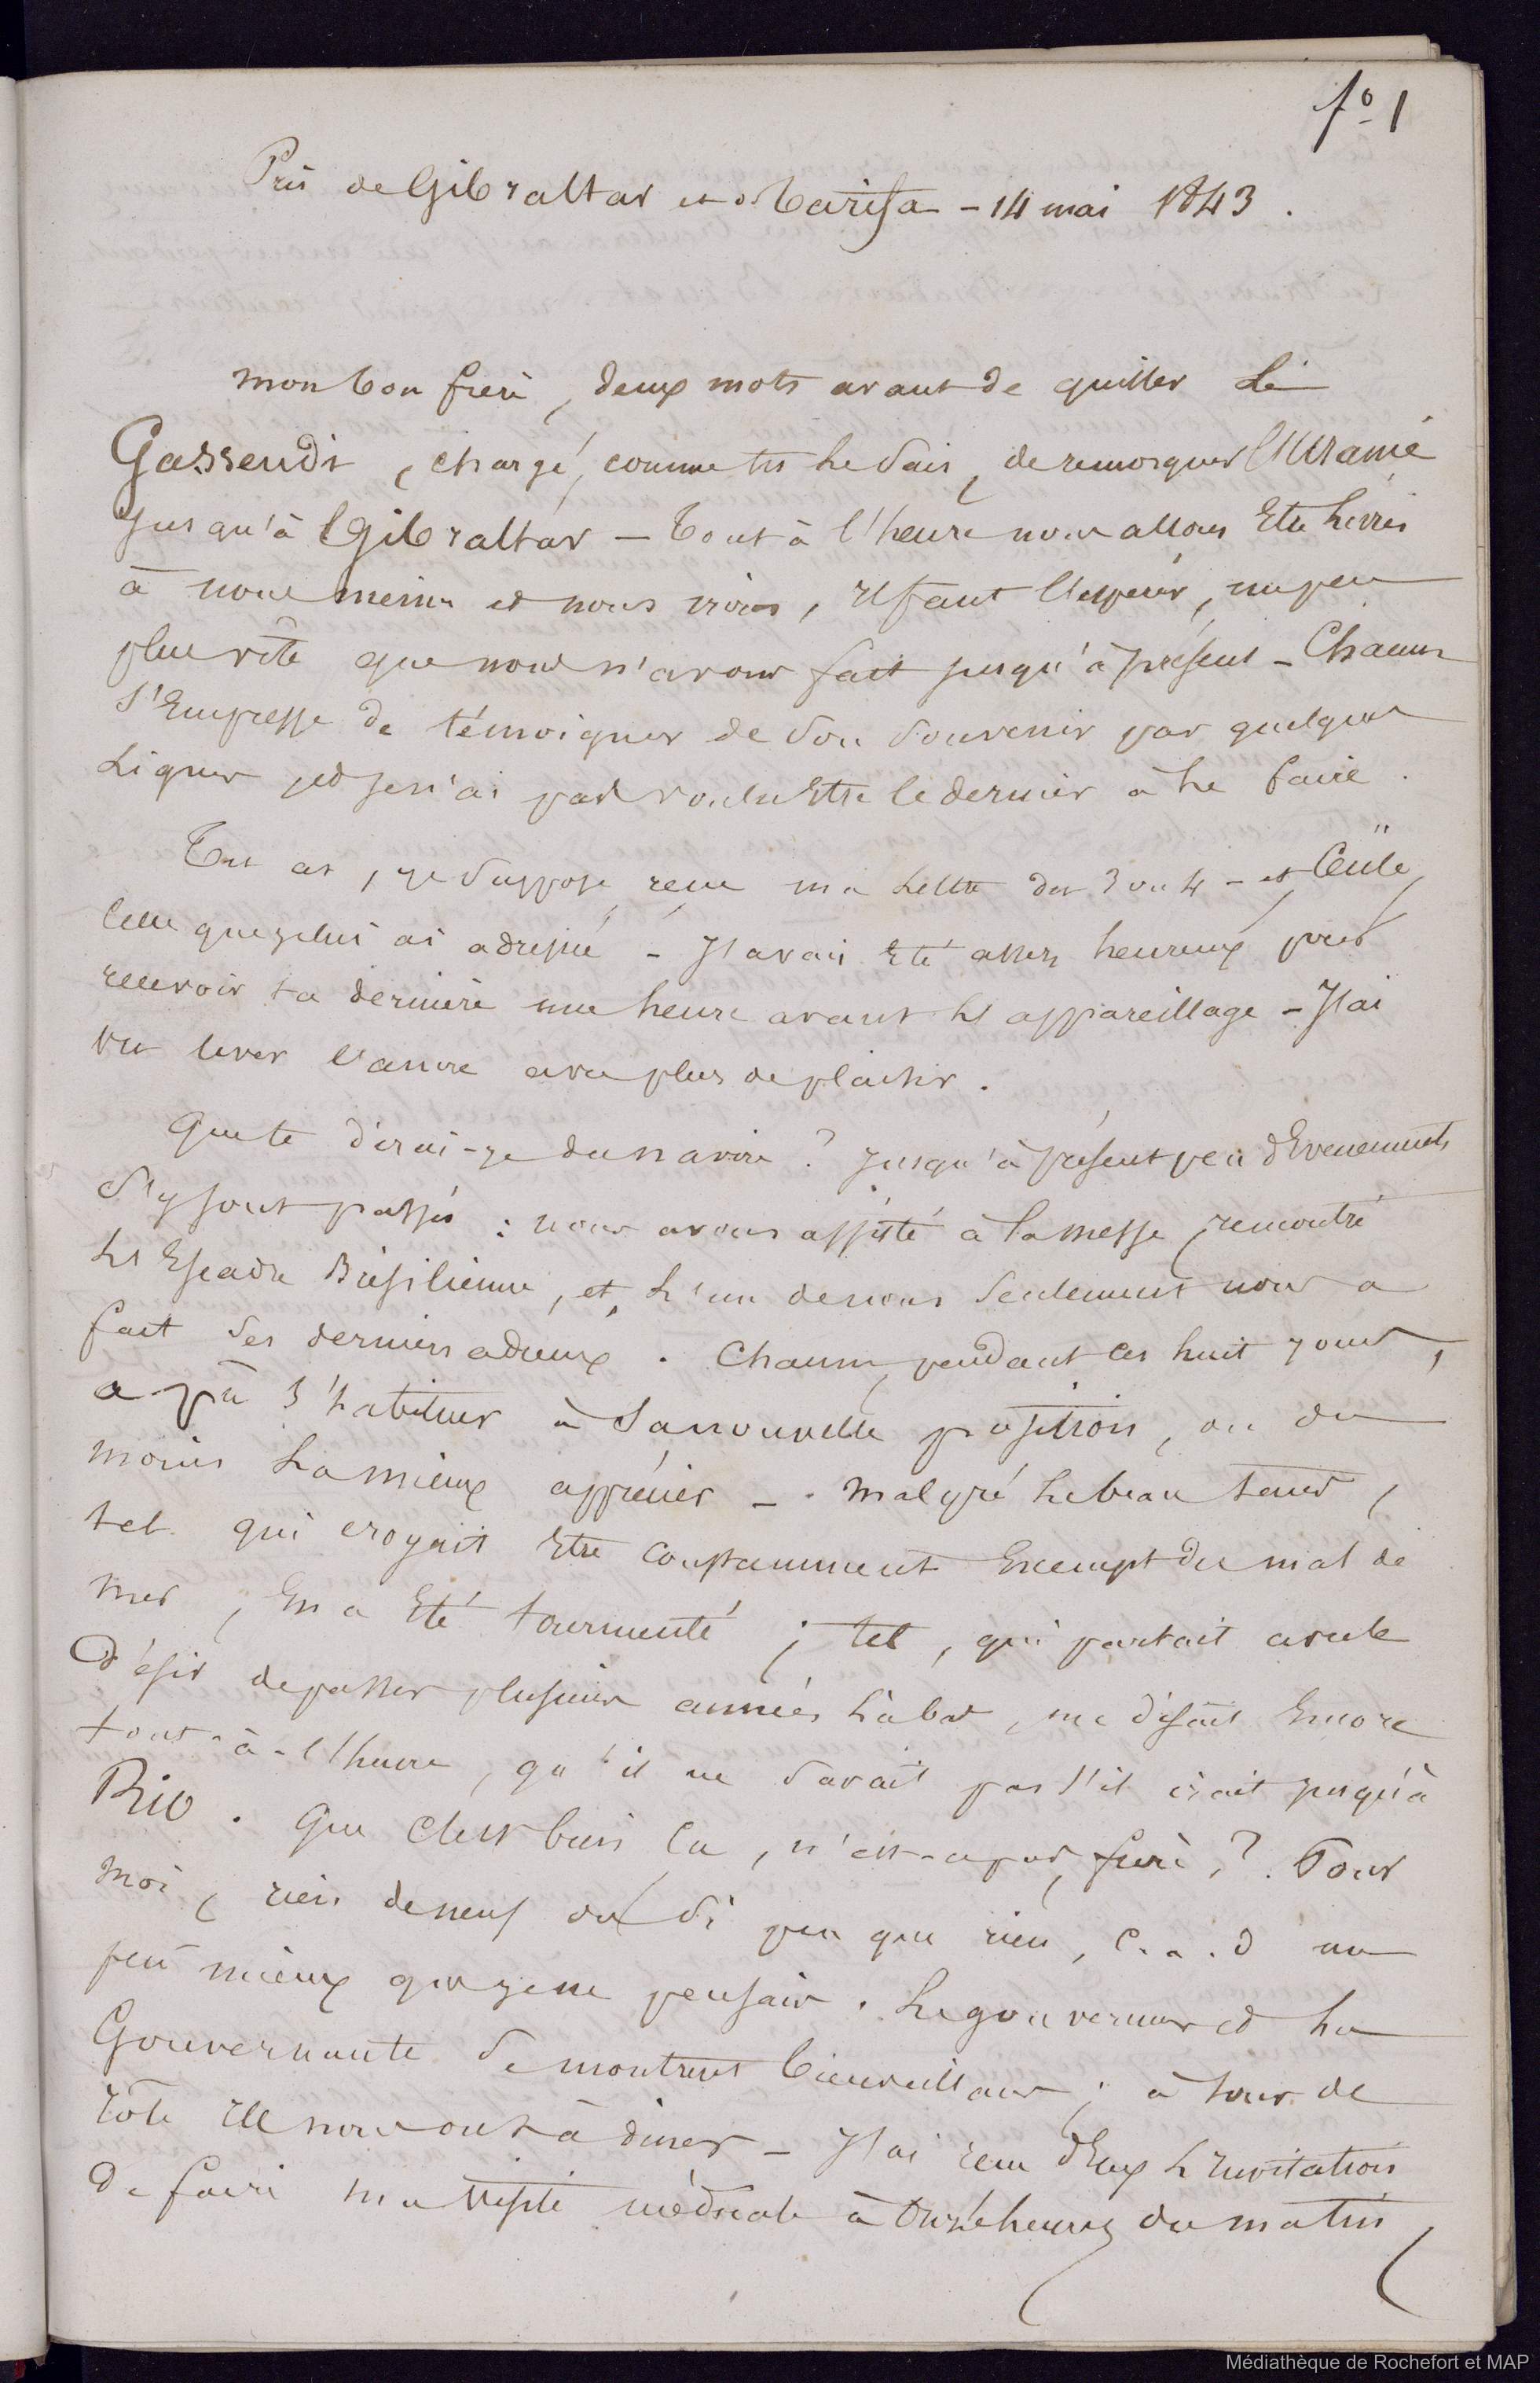 fo 1
Près de Gibraltar et de Tarifa - 14 mai 1843.
mon bon frère, deux mots avant de quitter Le
Gassendi, chargé, comme tu le sais, de remorquer l'Uranie
jusqu'à Gibraltar - Tout à l'heure nous allons être livrés
à nous mêmes et nous irons, il faut l'espérer, un peu
plus vite que nous n'avons fait jusqu'à présent - Chacun
s'empresse de témoigner de son souvenir par quelques
lignes, et je n'ai pas voulu être le dernier à le faire.
Tu as, je suppose, reçu ma lettre du 3 ou 4 - et Cécile,
celle que je lui ai adressée - J'avais été assez heureux pour
recevoir ta dernière une heure avant l'appareillage - J'ai
vu lever l'ancre avec plus de plaisir.
Que te dirai-je du navire ? jusqu'à présent peu d'évènements
s'y sont passés : nous avons assisté à la messe, rencontré
l'Escadre Brésilienne, et, l'un de nous seulement nous a
fait ses derniers adieux. Chacun, pendant ces huit jours,
a pu s'habituer à sa nouvelle position, ou du
moins la mieux apprécier -. malgré le beau tems,
tel qui croyait être constamment exempt du mal de
mer, en a été tourmenté ; tel, qui partait avec le
désir de passer plusieurs années là bas, me disait encore
tout-à-l'heure, qu'il ne savait pas s'il irait jusqu'à
Rio. Que c'est bien ça, n'est-ce pas, frère, ?. Pour
moi, rien de neuf ou si peu que rien, c.a.d un
peu mieux que je ne pensais. Le gouverneur et la
Gouvernante se montrent bienveillans ; à tour de
rôle ils nous ont à diner - J'ai reçu d'eux l'invitation
de faire ma visite médicale à onze heures du matin,
Médiathèque de Rochefort et MAP